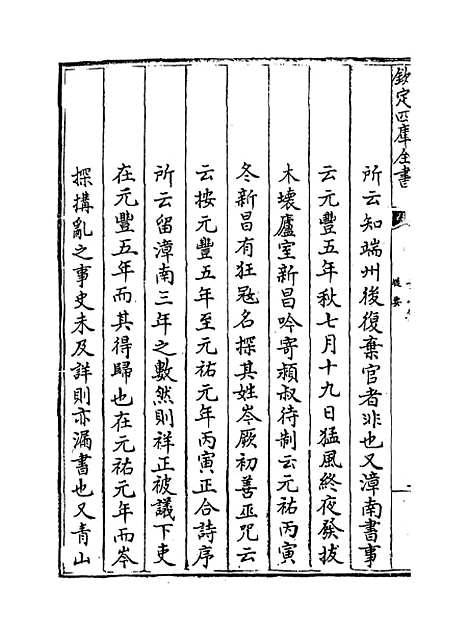 欽定四庫全書
提要
所云知端州後復棄官者非也又漳南書事
云元豐五年秋七月十九日猛風終夜發拔
木壞廬室新昌吟寄潁叔待制云元祐丙寅
冬新昌有狂冦名探其姓岑厥初善巫咒云
云按元豐五年至元祐元年丙寅正合詩序
所云留漳南三年之數然則祥正被議下吏
在元豐五年而其得歸也在元祐元年而岑
探搆亂之事史未及詳則亦漏書也又青山